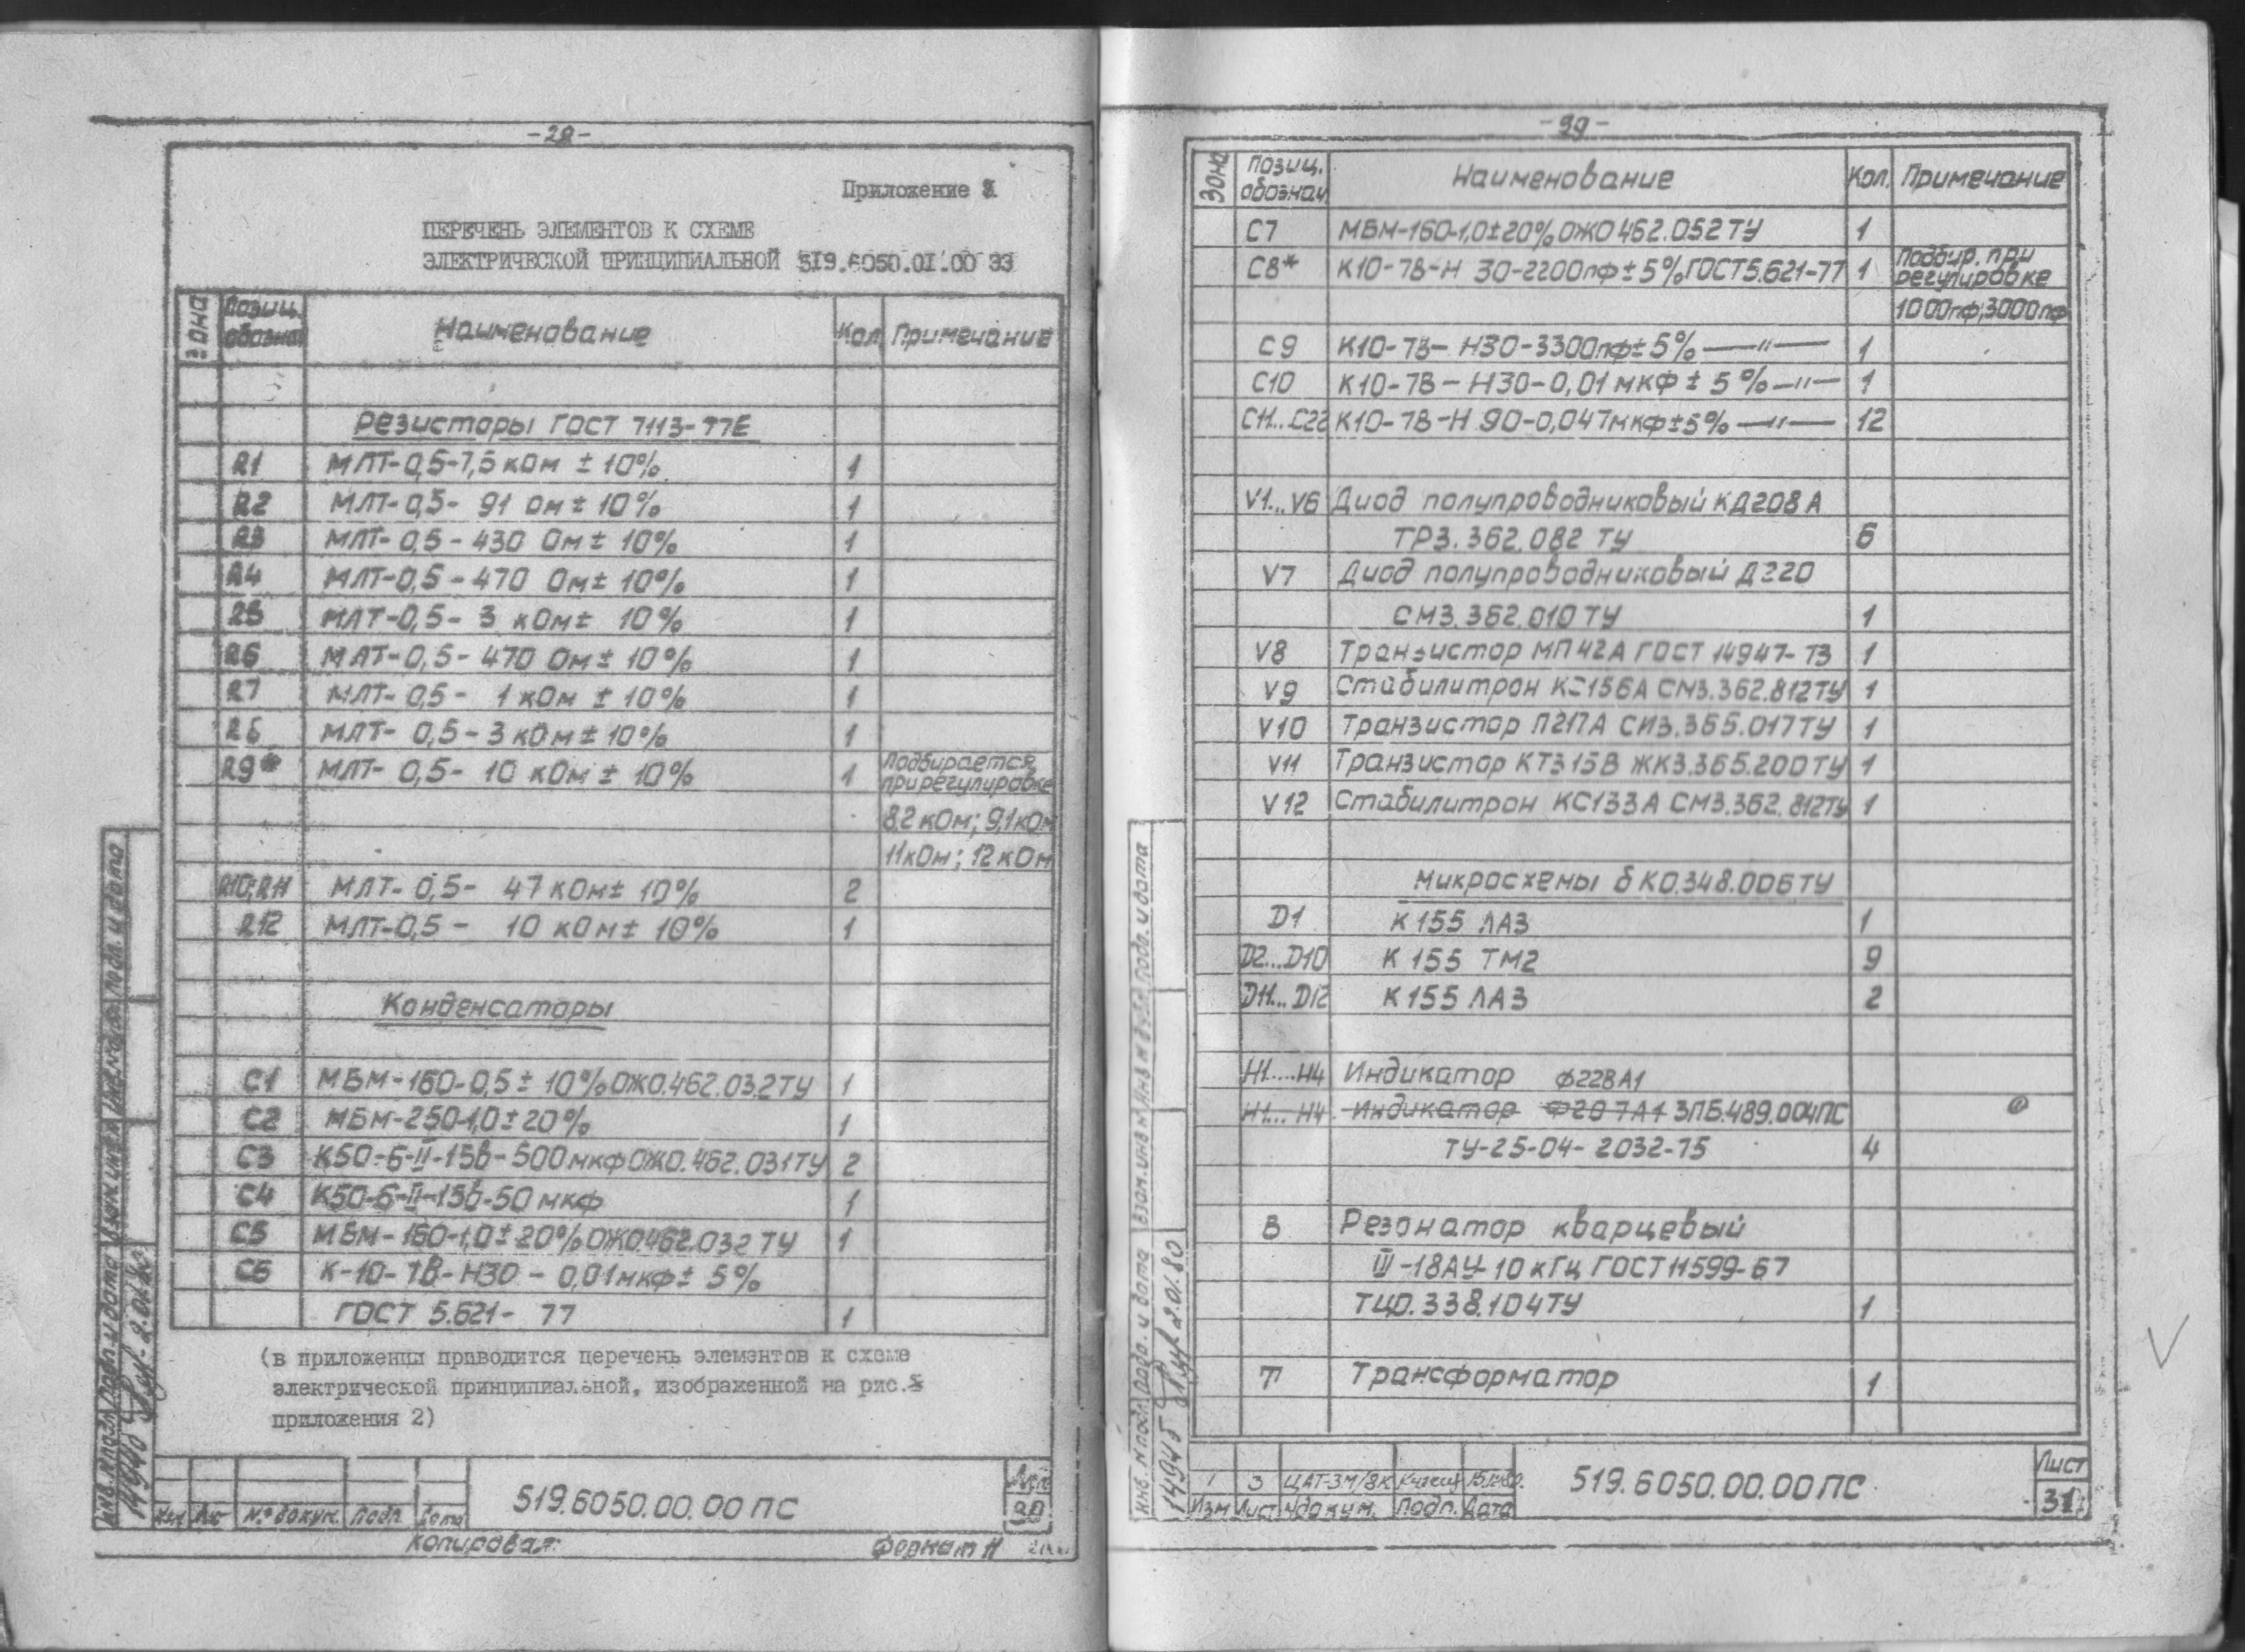 -28-
Приложение
ПЕРЕЧЕНЬ ЭЛЕМЕНТОВ К СХЕМЕ
ЭЛЕКТРИЧЕСКОЙ ПРИНЦИПИАЛЬНОЙ 519.6050.01.00 ЭЗ
Зона Позиц. обознач Наименование Кол Примечание
Резисторы ГОСТ 7113-77Е
R1 МЛТ-0,5-7,5 кОм ± 10% 1
R2 МЛТ-0,5- 91 Ом ± 10% 1
R3 МЛТ-0,5-430 Ом ± 10% 1
R4 МЛТ-0,5-470 Ом ± 10% 1
R5 МЛТ-0,5- 3 кОм ± 10% 1
R6 МЛТ-0,5-470 Ом ± 10% 1
R7 МЛТ-0,5- 1 кОм ± 10% 1
МЛТ- 0,5-3 кОм ± 10% 1
R9* МЛТ- 0,5- 10 кОм ± 10% 1 Подбирается при регулировке
8,2 кОм; 9,1 кОм
11 кОм; 12 кОм
R10; R11 МЛТ- 0,5- 47 кОм ± 10% 2
R12 МЛТ-0,5- 10 кОм ± 10% 1
Конденсаторы
С1 МБМ-160-0,5 ± 10% ОЖО.462.032ТУ 1
С2 МБМ-250-1,0 ± 20% 1
С3 К50-6-II-15в-500 мкф ОЖО.462.031ТУ 2
С4 К50-6-II-15в-50 мкф 1
С5 МБМ-160-1,0 ± 20% ОЖО.462.032 ТУ 1
С6 К-10-7В-Н30-0,01 мкф ± 5%
ГОСТ 5.621- 77 1
(в приложении приводится перечень элементов к схеме
электрической принципиальной, изображенной на рис.
приложения 2)
519.6050.00.00 ПС
Лист
30
Изм Ли № докум. Подп. Дата
Копировал: Формат 11
Подп. и дата
14945
-29-
Зона Позиц. обознач Наименование Кол. Примечание
С7 МБМ-160-1,0±20% ОЖО 462.052 ТУ 1
С8* К10-7В-Н 30-2200 пф ± 5% ГОСТ 5.621-77 1 Подбир. при регулировке
1000 пф; 3000 пф
С9 К10-7В-Н30-3300 пф ± 5% —"— 1
С10 К10-7В-Н30-0,01 мкф ± 5% —"— 1
С11...С22 К10-7В-Н 90-0,047 мкф ±5% —"— 12
V1...V6 Диод полупроводниковый КД208А
ТР3.362.082 ТУ 6
V7 Диод полупроводниковый Д220
СМ3.362.010 ТУ 1
V8 Транзистор МП42А ГОСТ 14947-73 1
V9 Стабилитрон КС156А СМ3.362.812ТУ 1
V10 Транзистор П217А СИ3.365.017ТУ 1
V11 Транзистор КТ315В ЖК3.365.200ТУ 1
V12 Стабилитрон КС133А СМ3.362.812ТУ 1
Микросхемы бКО.348.006ТУ
D1 К 155 ЛА3 1
D2...D10 К 155 ТМ2 9
D11...D12 К 155 ЛА3 2
Н1....Н4 Индикатор Ф228А1
Н1... Н4 Индикатор Ф207А1 3ПБ.489.004ПС
ТУ-25-04-2032-75 4
В Резонатор кварцевый
III-18АУ-10 кГц ГОСТ 11599-67
ТЦ0.338.104ТУ 1
Т Трансформатор 1
1 3 ЦАТ-3М/8К
Изм Лист №докум. Подп. Дата
519.6050.00.00 ПС
Лист
31
Инв. № подл. Подп. и дата Взам. инв № Подп. и дата
14945 2.01.80